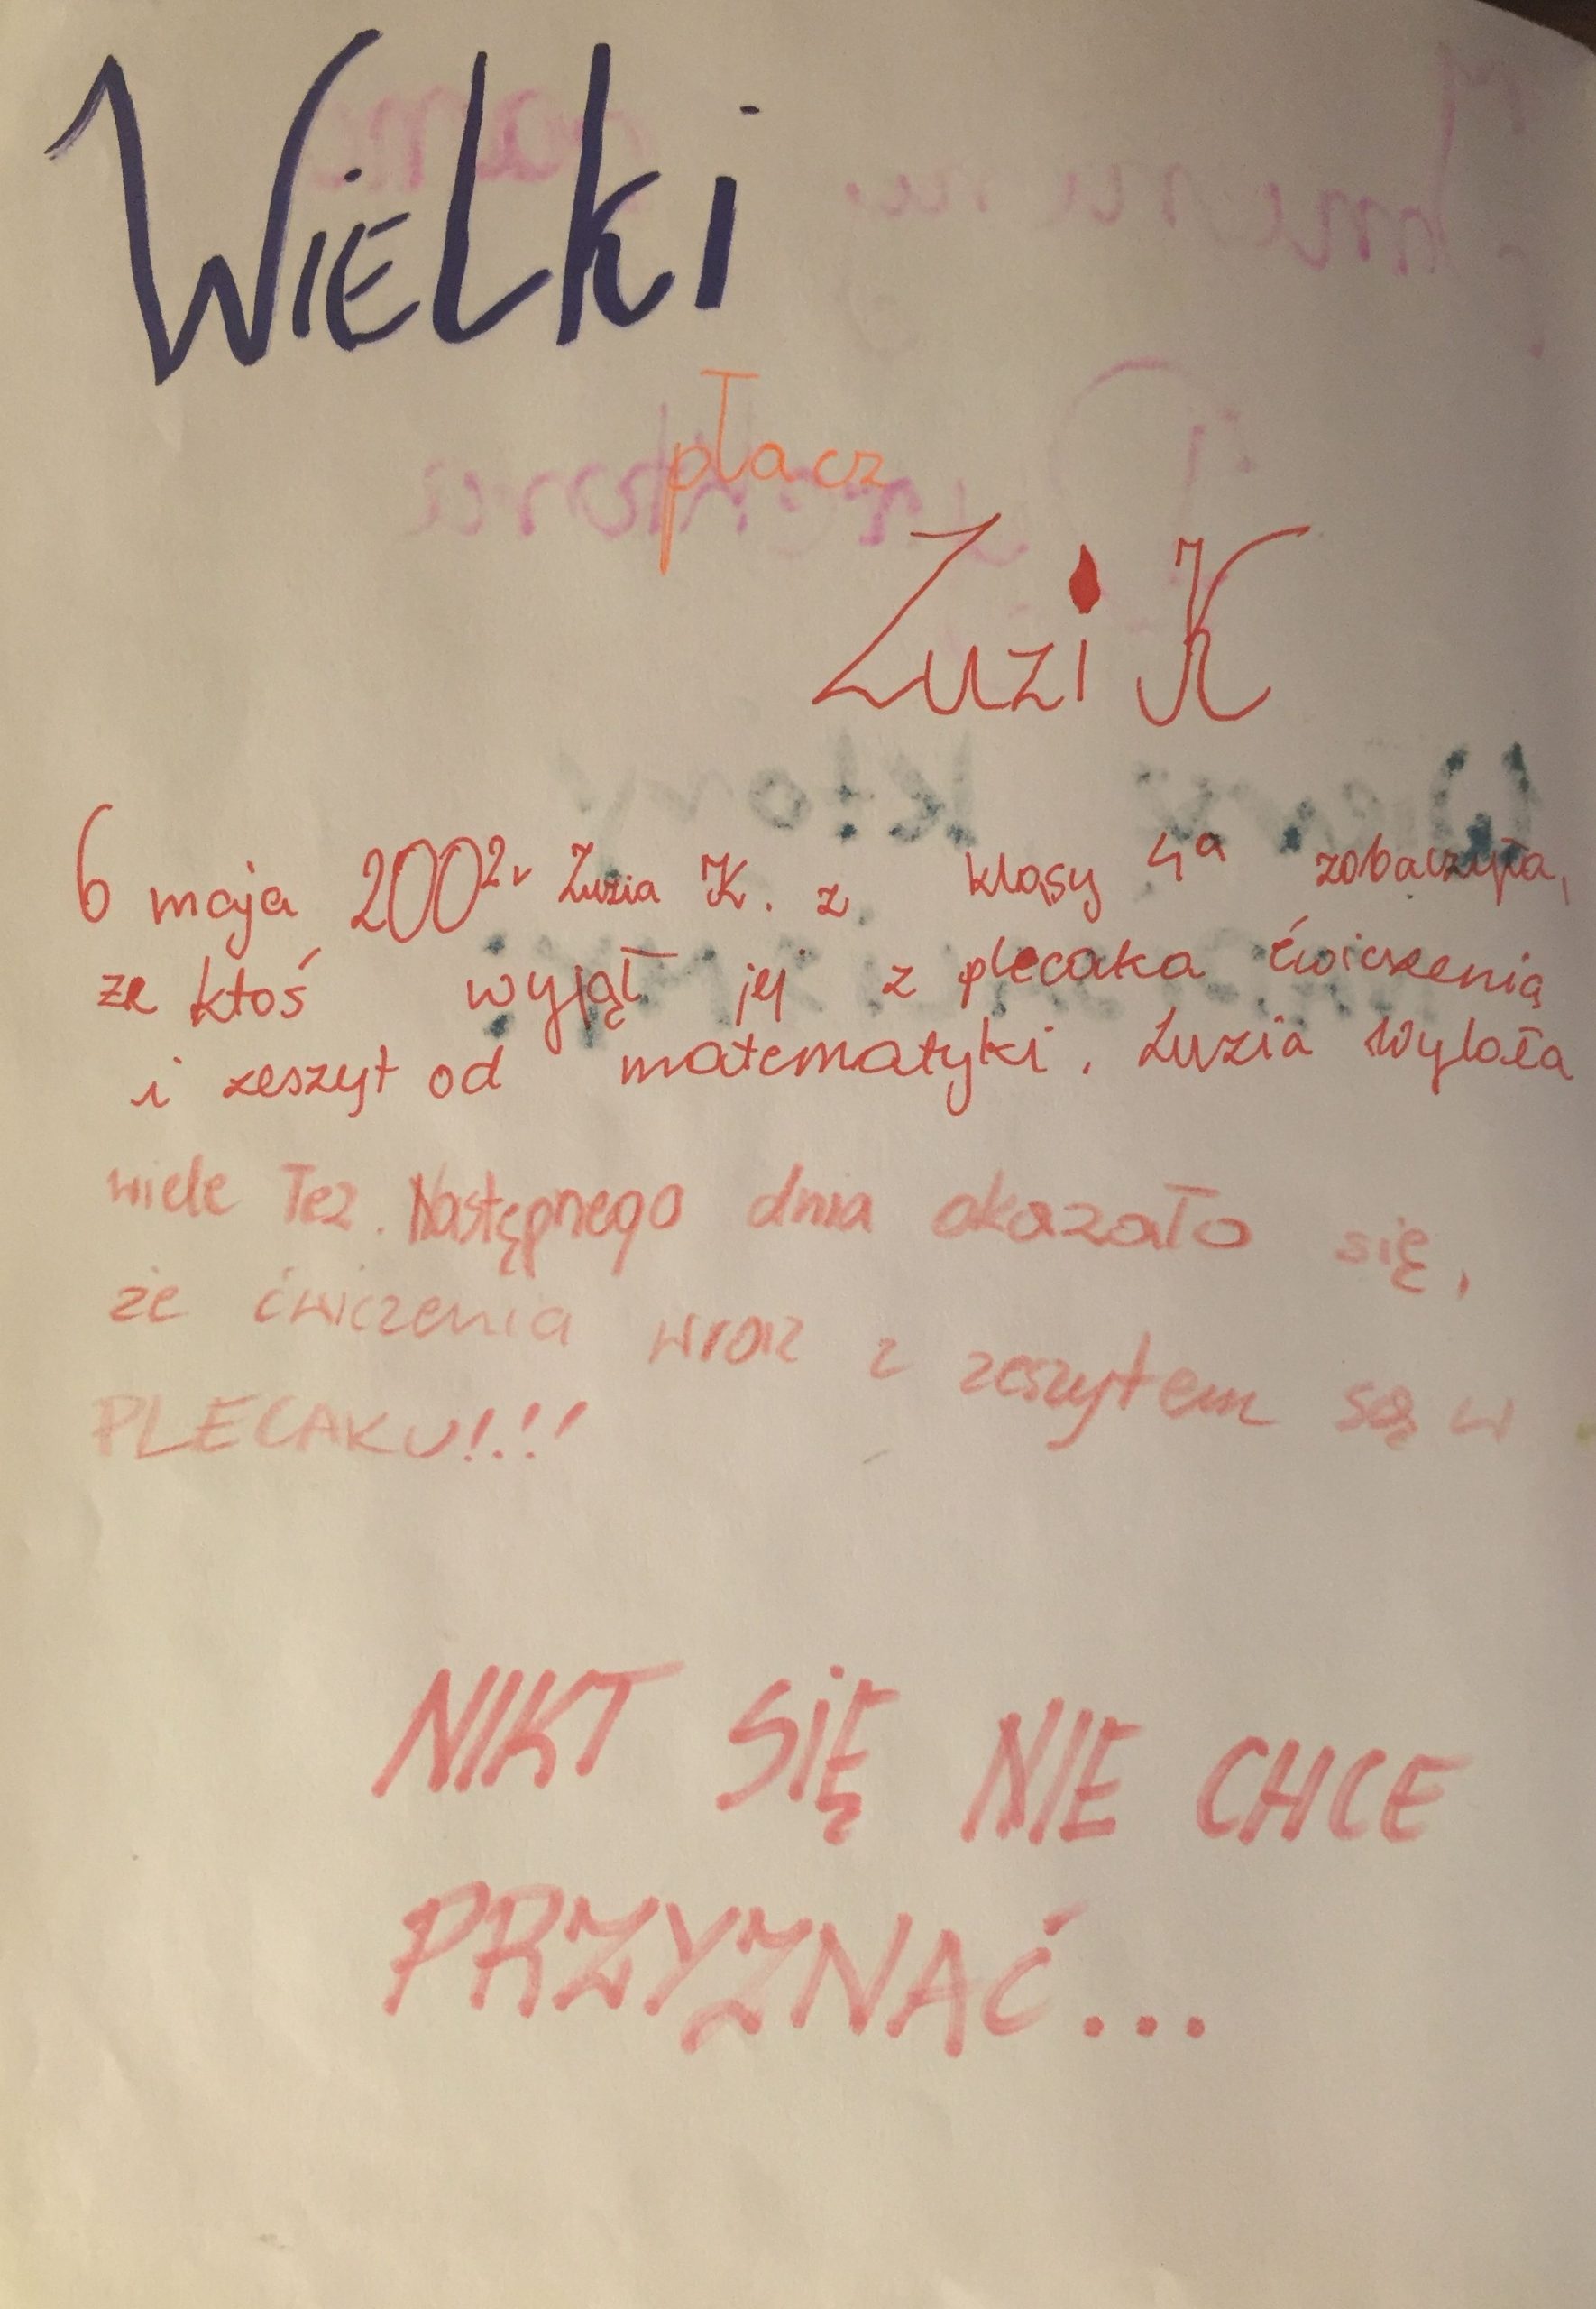 WIELKI
płacz
Zuzi K
6 maja 2002r Zuzia K. z klasy 4a zobaczyła,
że ktoś wyjął jej z plecaka ćwiczenia
i zeszyt od matematyki. Zuzia wylała
wiele łez. Następnego dnia okazało się,
że ćwiczenia wraz z zeszytem są w
PLECAKU!!!
NIKT SIĘ NIE CHCE
PRZYZNAĆ...